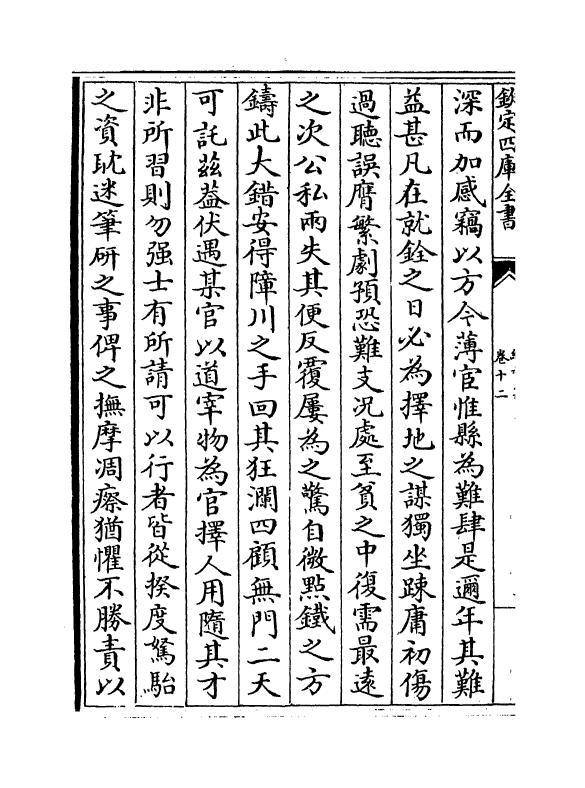 欽定四庫全書
卷十二
深而加感竊以方今薄宦惟縣為難肆是邇年其難
益甚凡在就銓之日必為擇地之謀獨坐踈庸初傷
過聽誤膺繁劇預恐難支況處至貧之中復需最遠
之次公私兩失其便反覆屢為之驚自微點鐵之方
鑄此大錯安得障川之手回其狂瀾四顧無門二天
可託兹葢伏遇某官以道宰物為官擇人用隨其才
非所習則勿强士有所請可以行者皆從揆度駑駘
之資耽迷筆研之事俾之撫摩凋瘵猶懼不勝責以